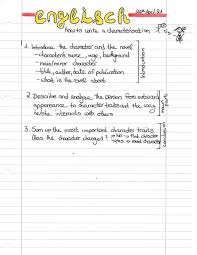 englisch
how to write a characterization
1. Introduce the character and the novel
- character's name, age, background
- main/minor character
- title, author, date of publication
- what is the novel about
introduction
2. Describe and analyse the person from outward
appearance to character traits and the way
he/she interacts with others
main part
3. Sum up the most important character traits
(Has the character changed?
→ no → flat character
→ yes → round character
conclusion